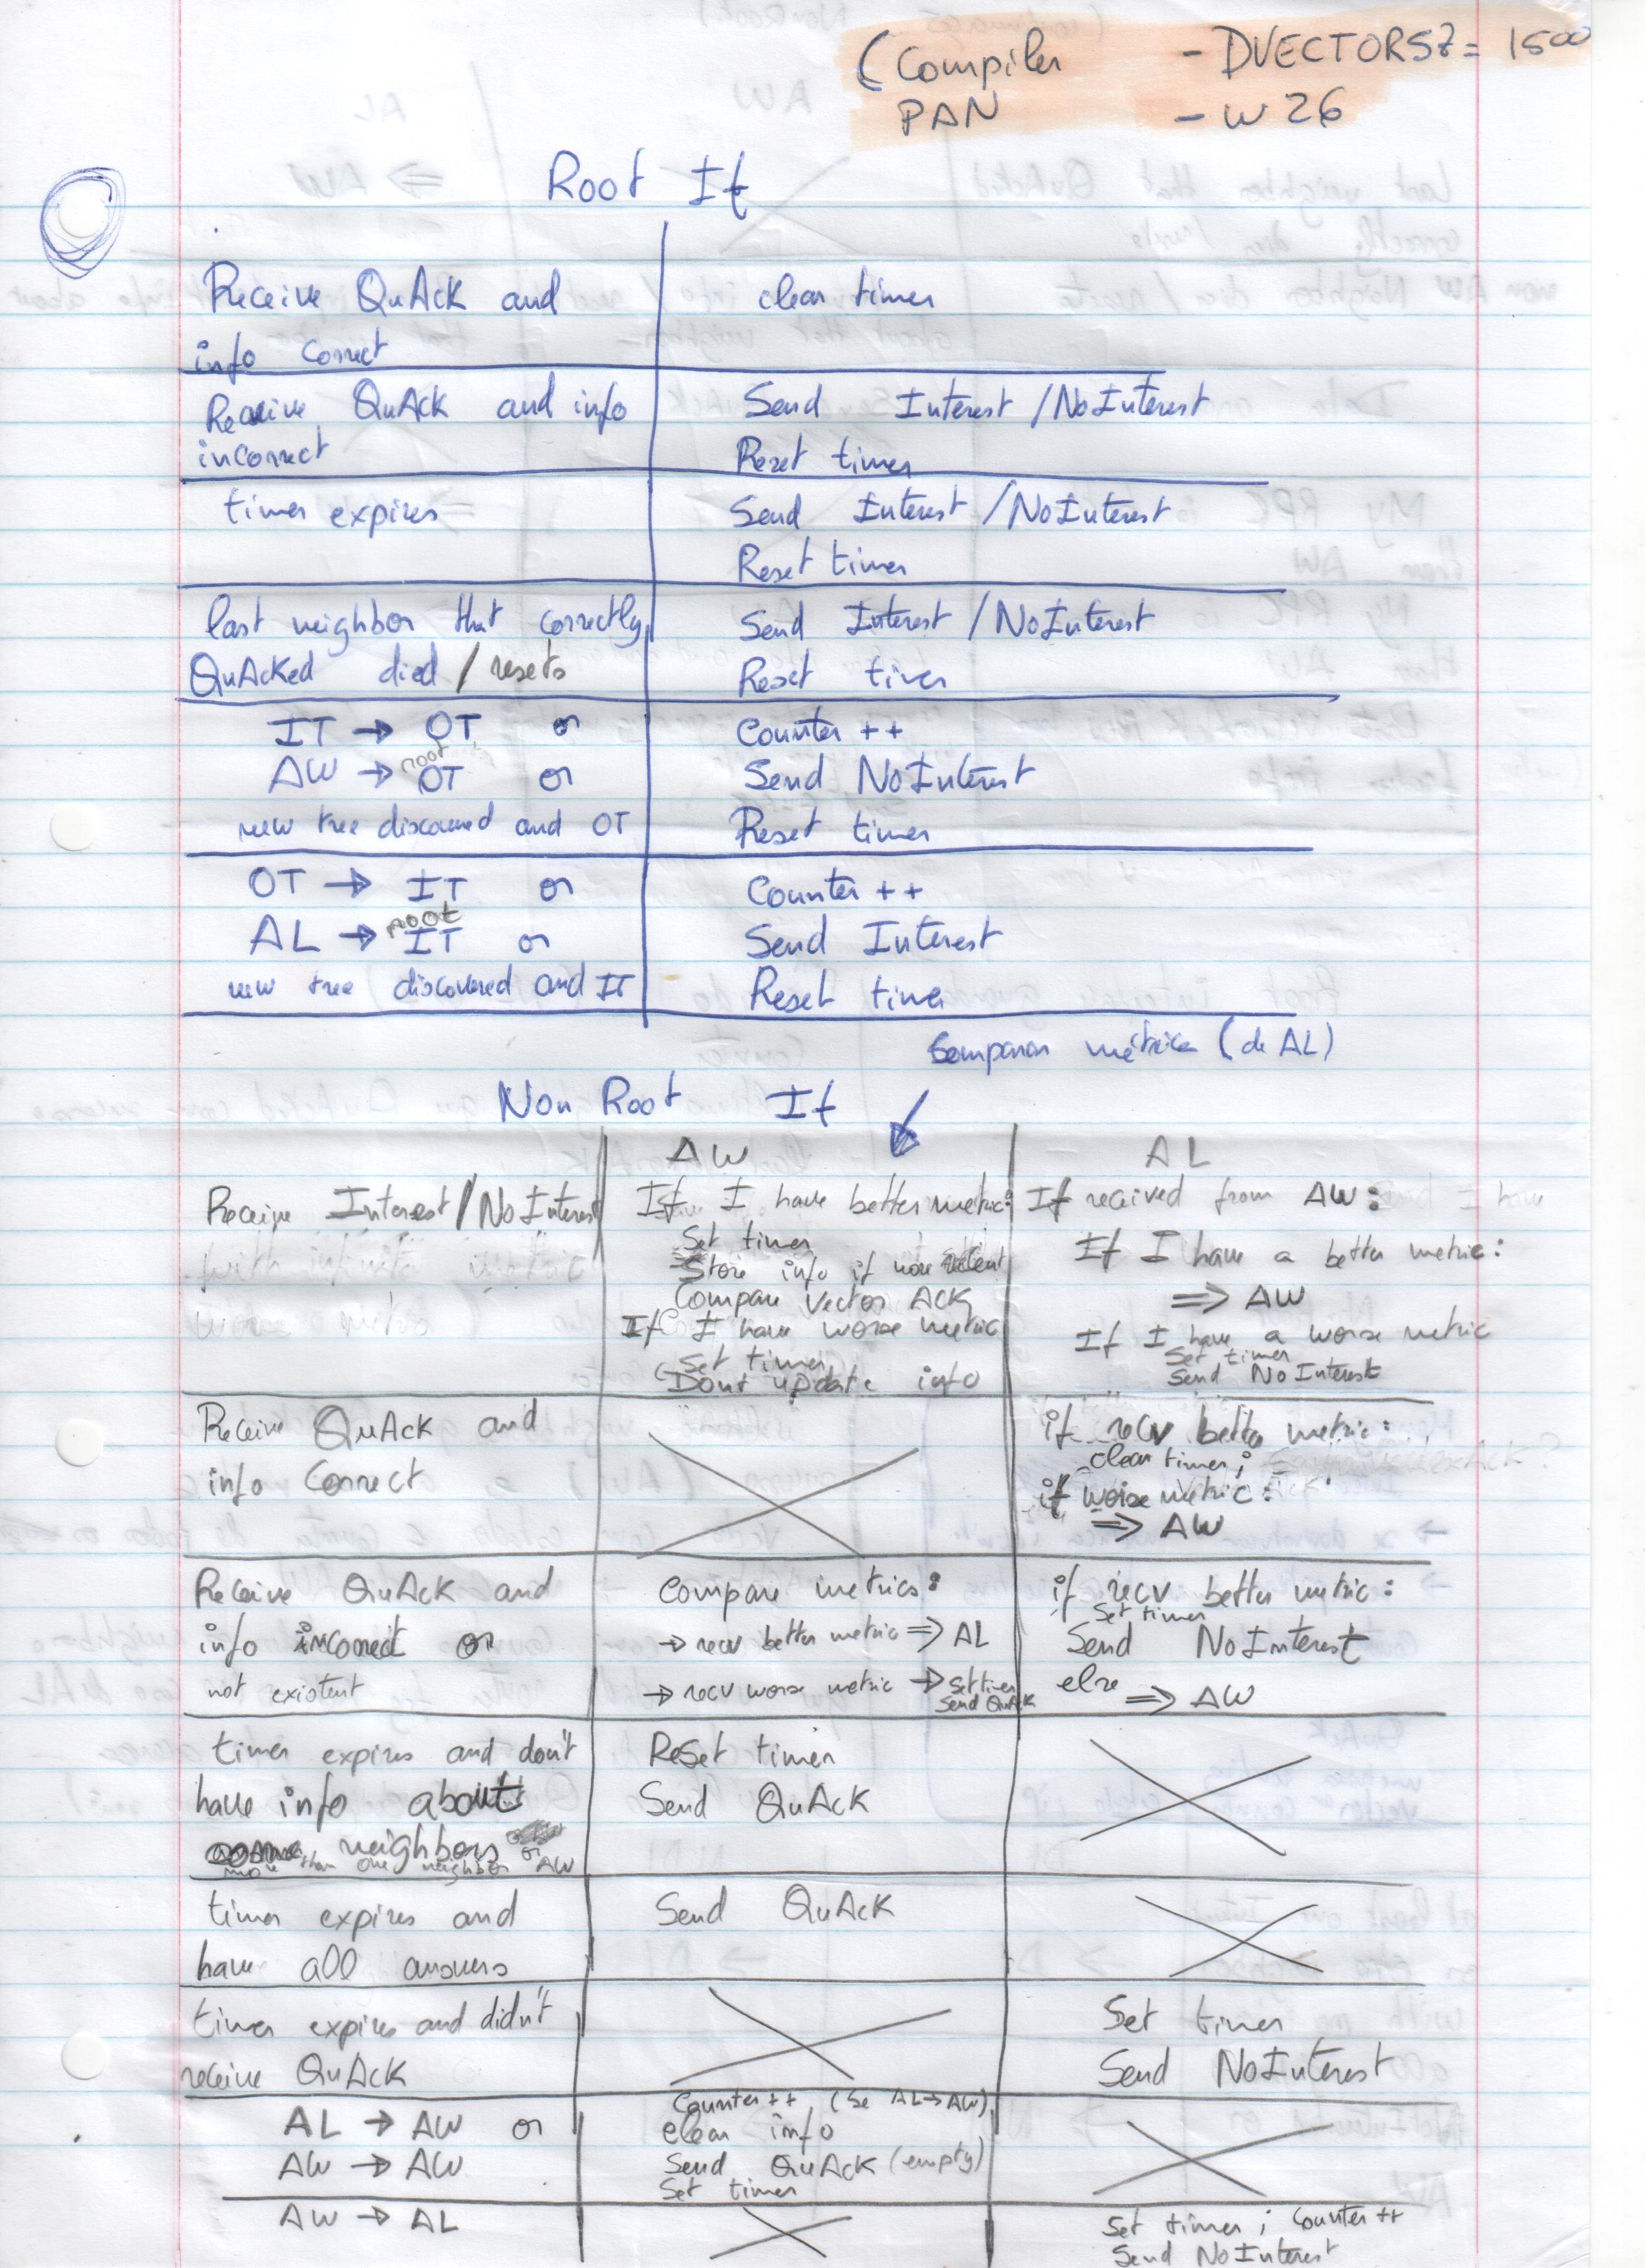 (Compiler - DVECTORSZ= 1500
PAN - w 26
Root If
Receive QuAck and
info correct
clear timer
Receive QuAck and info
incorrect
Send Interest /NoInterest
Reset timer
timer expires
Send Interest /NoInterest
Reset timer
last neighbor that correctly
QuAcked died / resets
Send Interest /NoInterest
Reset timer
IT → OT or
AW → root OT or
new tree discovered and OT
Counter ++
Send NoInterest
Reset timer
OT → IT or
AL → root IT or
new tree discovered and IT
Counter ++
Send Interest
Reset timer
Comparar métrica (do AL)
Non Root If
AW
AL
Receive Interest/NoInterest
If I have better metric:
Set timer
Store info if more recent
Compare Vector ACK
If I have worse metric
Set timer
Dont update info
If received from AW:
If I have a better metric:
⇒ AW
If I have a worse metric
Set timer
Send NoInterest
Receive QuAck and
info Correct
if recv better metric:
clear timer;
if worse metric:
⇒ AW
Receive QuAck and
info incorrect or
not existent
Compare metrics:
→ recv better metric ⇒ AL
→ recv worse metric → Set timer
Send QuAck
if recv better metric:
Set timer
Send NoInterest
else ⇒ AW
timer expires and don't
have info about
neighbors or
more than one neighbor AW
Reset timer
Send QuAck
timer expires and
have all answers
Send QuAck
timer expires and didn't
receive QuAck
Set timer
Send NoInterest
AL → AW or
AW → AW
Counter ++ (se AL→AW)
clear info
Send QuAck (empty)
Set timer
AW → AL
Set timer ; Counter ++
Send NoInterest